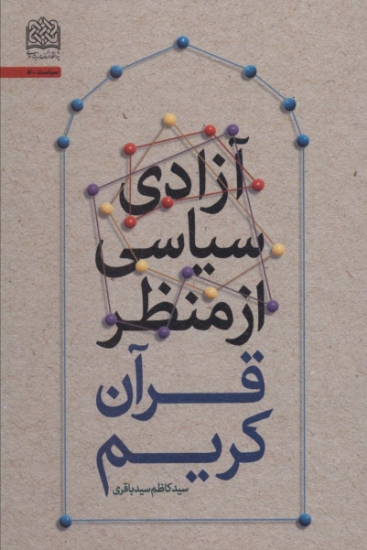 آزادی
سیاسی
از منظر
قرآن
کریم
سید کاظم سیدباقری